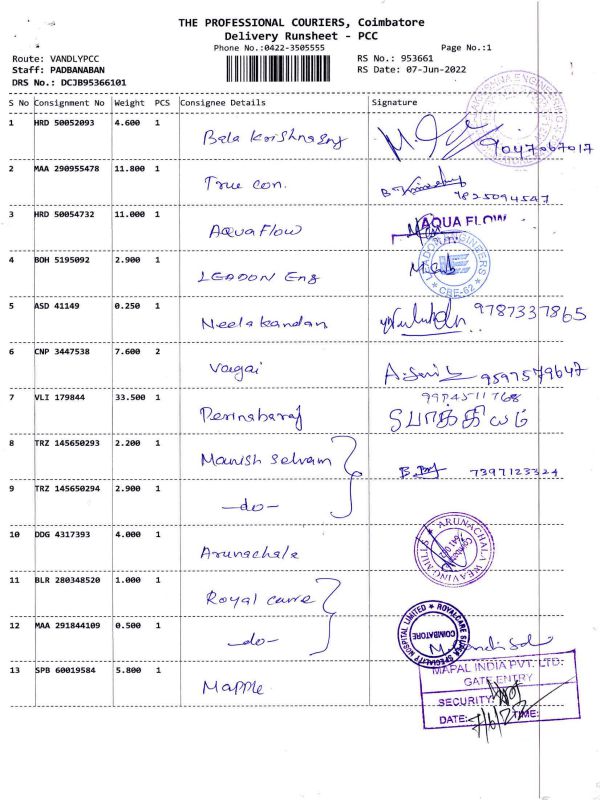 THE PROFESSIONAL COURIERS, Coimbatore
Delivery Runsheet - PCC
Phone No.:0422-3505555 Page No.:1
Route: VANDLYPCC RS No.: 953661
Staff: PADBANABAN RS Date: 07-Jun-2022
DRS No.: DCJB95366101
S No Consignment No Weight PCS Consignee Details Signature
1 HRD 50052093 4.600 1 Bala Krishna Eng 9047067017
2 MAA 290955478 11.800 1 True con. 9825094547
3 HRD 50054732 11.000 1 Aqua Flow AQUA FLOW
4 BOH 5195092 2.900 1 LEADON Eng ENGINEERS CBE-62
5 ASD 41149 0.250 1 Neelakandan 9787337865
6 CNP 3447538 7.600 2 Vaigai 9597579647
7 VLI 179844 33.500 1 9994511768
8 TRZ 145650293 2.200 1 Manish Selvam 7397123324
9 TRZ 145650294 2.900 1 -do-
10 DDG 4317393 4.000 1 Arunachala ARUNACHALA WEAVING MILLS
11 BLR 280348520 1.000 1 Royal care
12 MAA 291844109 0.500 1 -do- ROYALCARE SUPER SPECIALITY HOSPITAL LIMITED COIMBATORE
13 SPB 60019584 5.800 1 Mapple MAPAL INDIA PVT. LTD:
GATE ENTRY
SECURITY:
DATE: 7/6/22 TIME: